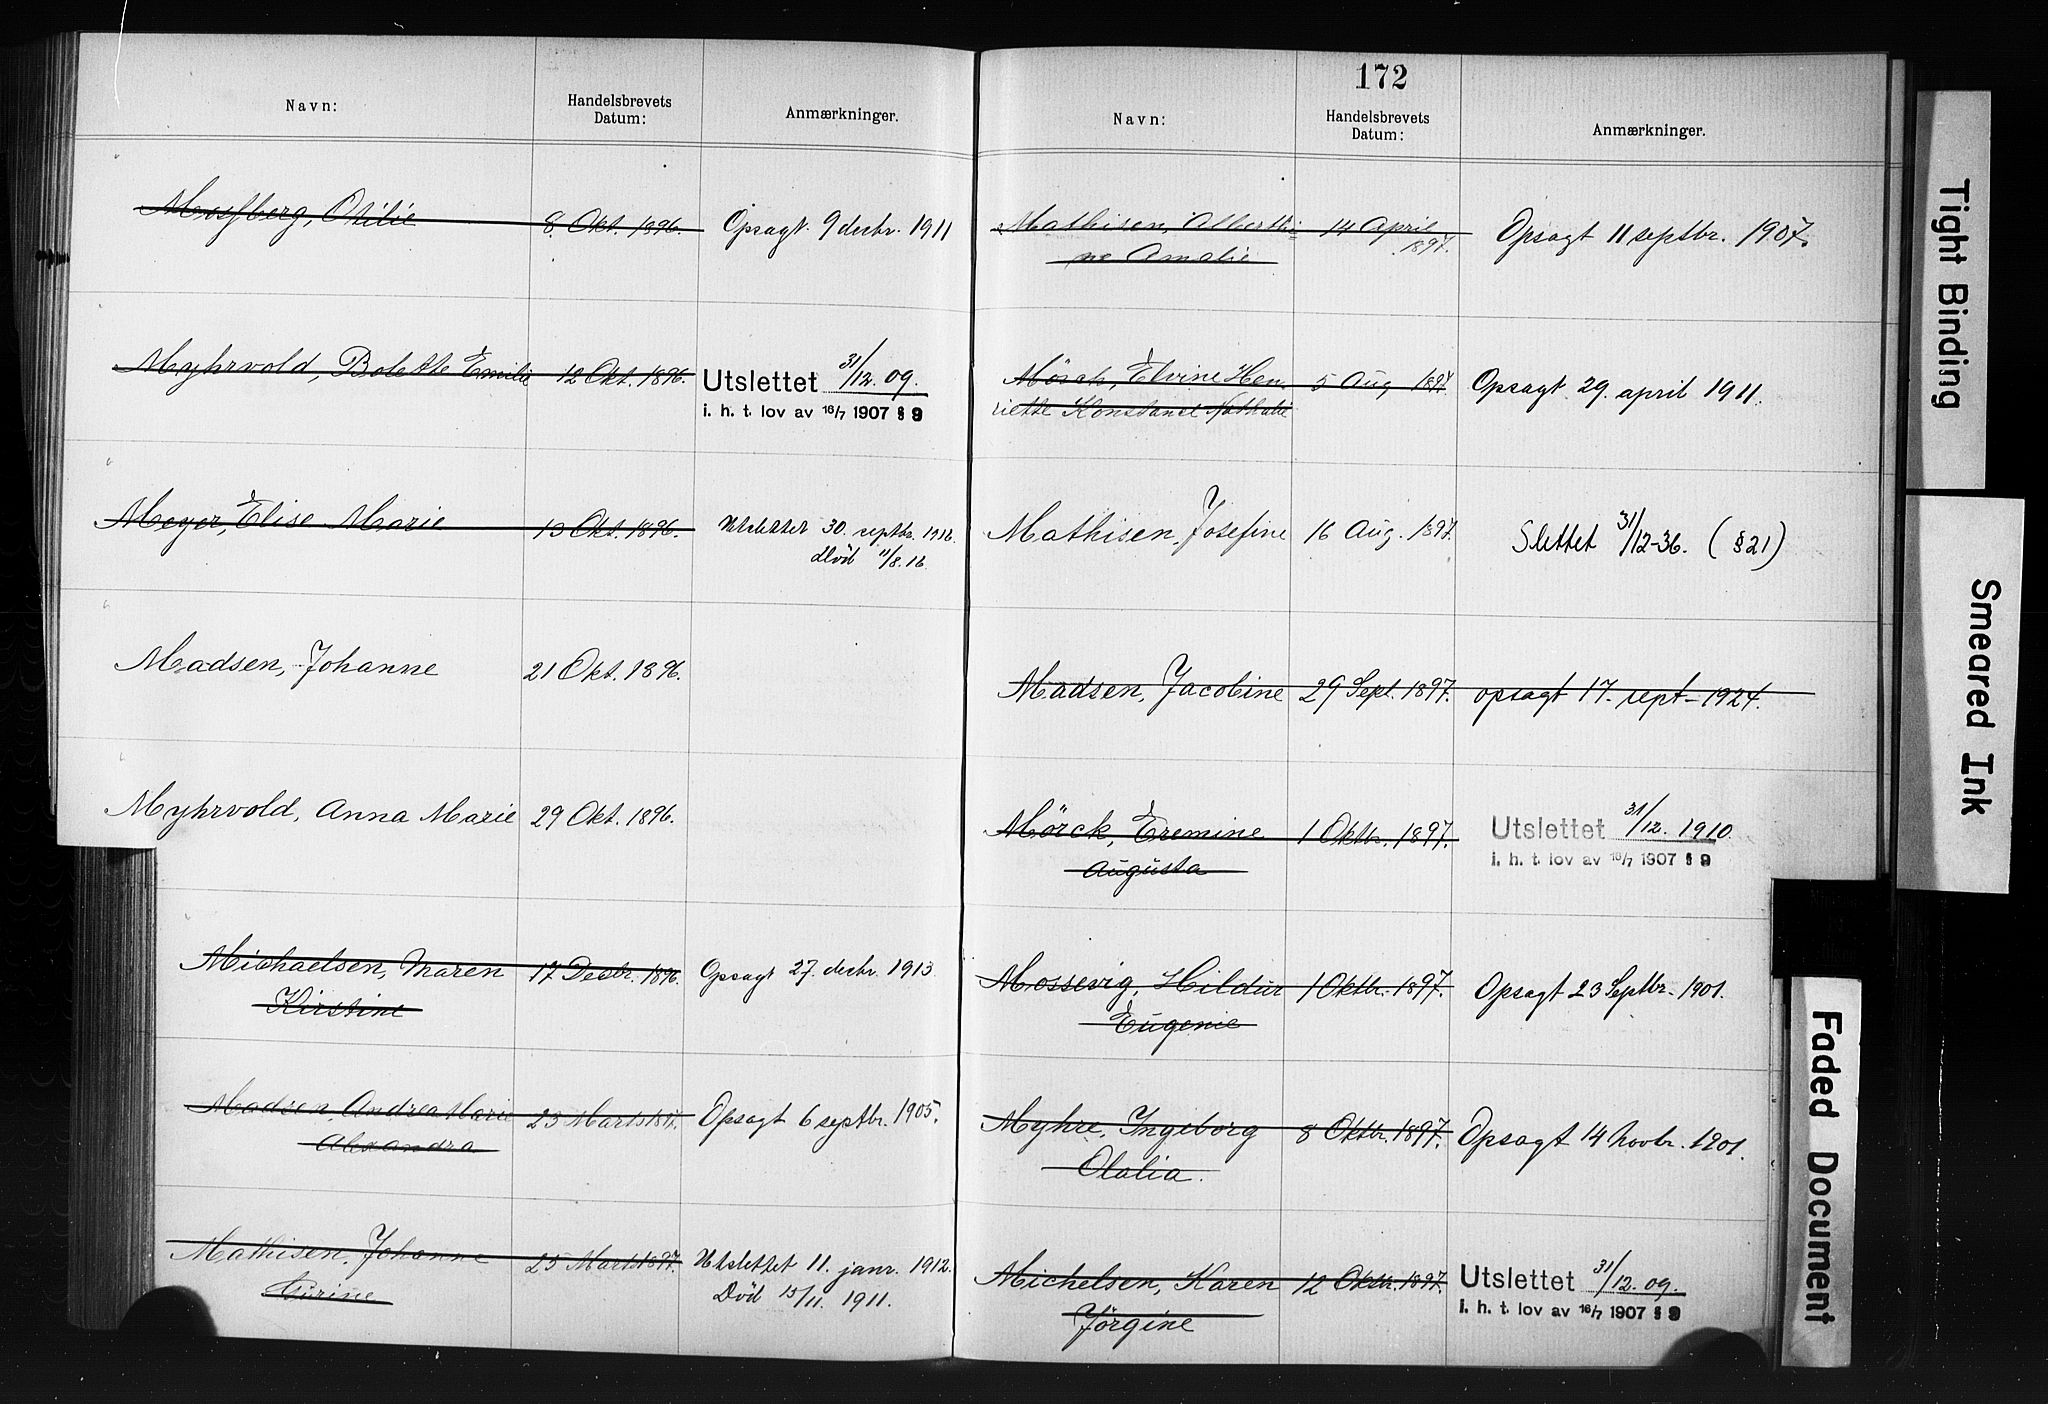 Navn:
Handelsbrevets
Datum:
Anmærkninger.
Mossberg, Otilie 8. Okt. 1896. Opsagt. 9 decbr. 1911
Myhrvold, Bolette Emilie 12 Okt. 1896. Utslettet 31/12. 09.
i. h. t. lov av 16/7 1907 § 9
Meyer, Elise Marie 13 Okt. 1896. Utslettet 30. septbr. 1916.
Död 11/8.16.
Madsen, Johanne 21 Okt. 1896.
Myhrvold, Anna Marie 29 Okt. 1896.
Michaelsen, Maren 17 Decbr. 1896. Opsagt 27. decbr. 1913.
Kirstine
Madsen, Andrea Marie 23 Marts 1897. Opsagt 6 septbr. 1905.
Alexandra
Mathisen, Johanne 25 Marts 1897. Utslettet 11. janr. 1912.
Turine Död 15/11. 1911.
172
Navn:
Handelsbrevets
Datum:
Anmærkninger.
Mathisen, Alberthi- 14 April Opsagt 11 septbr. 1907.
ne Amalie 1897.
Mörch, Elvine Hen- 5 Aug 1897 Opsagt 29. april 1911.
riette Konstanse Nathalie
Mathisen, Josefine 16 Aug. 1897. Slettet 31/12-36. (§21)
Madsen, Jacobine 29 Sept. 1897. opsagt 17. sept - 1924.
Mörck, Eremine 1 Oktbr. 1897. Utslettet 31/12. 1910.
Augusta i. h. t. lov av 16/7 1907 § 9
Mossevig, Hildur 1 Oktbr. 1897. Opsagt 23 Septbr. 1901.
Eugenie
Myhre, Ingeborg 8 Oktbr. 1897. Opsagt 14 Novbr. 1901.
Olalia.
Michelsen, Karen 12 Oktbr. 1897. Utslettet 31/12. 09.
Jörgine i. h. t. lov av 16/7 1907 § 9
Tight Binding
Smeared Ink
Faded Document